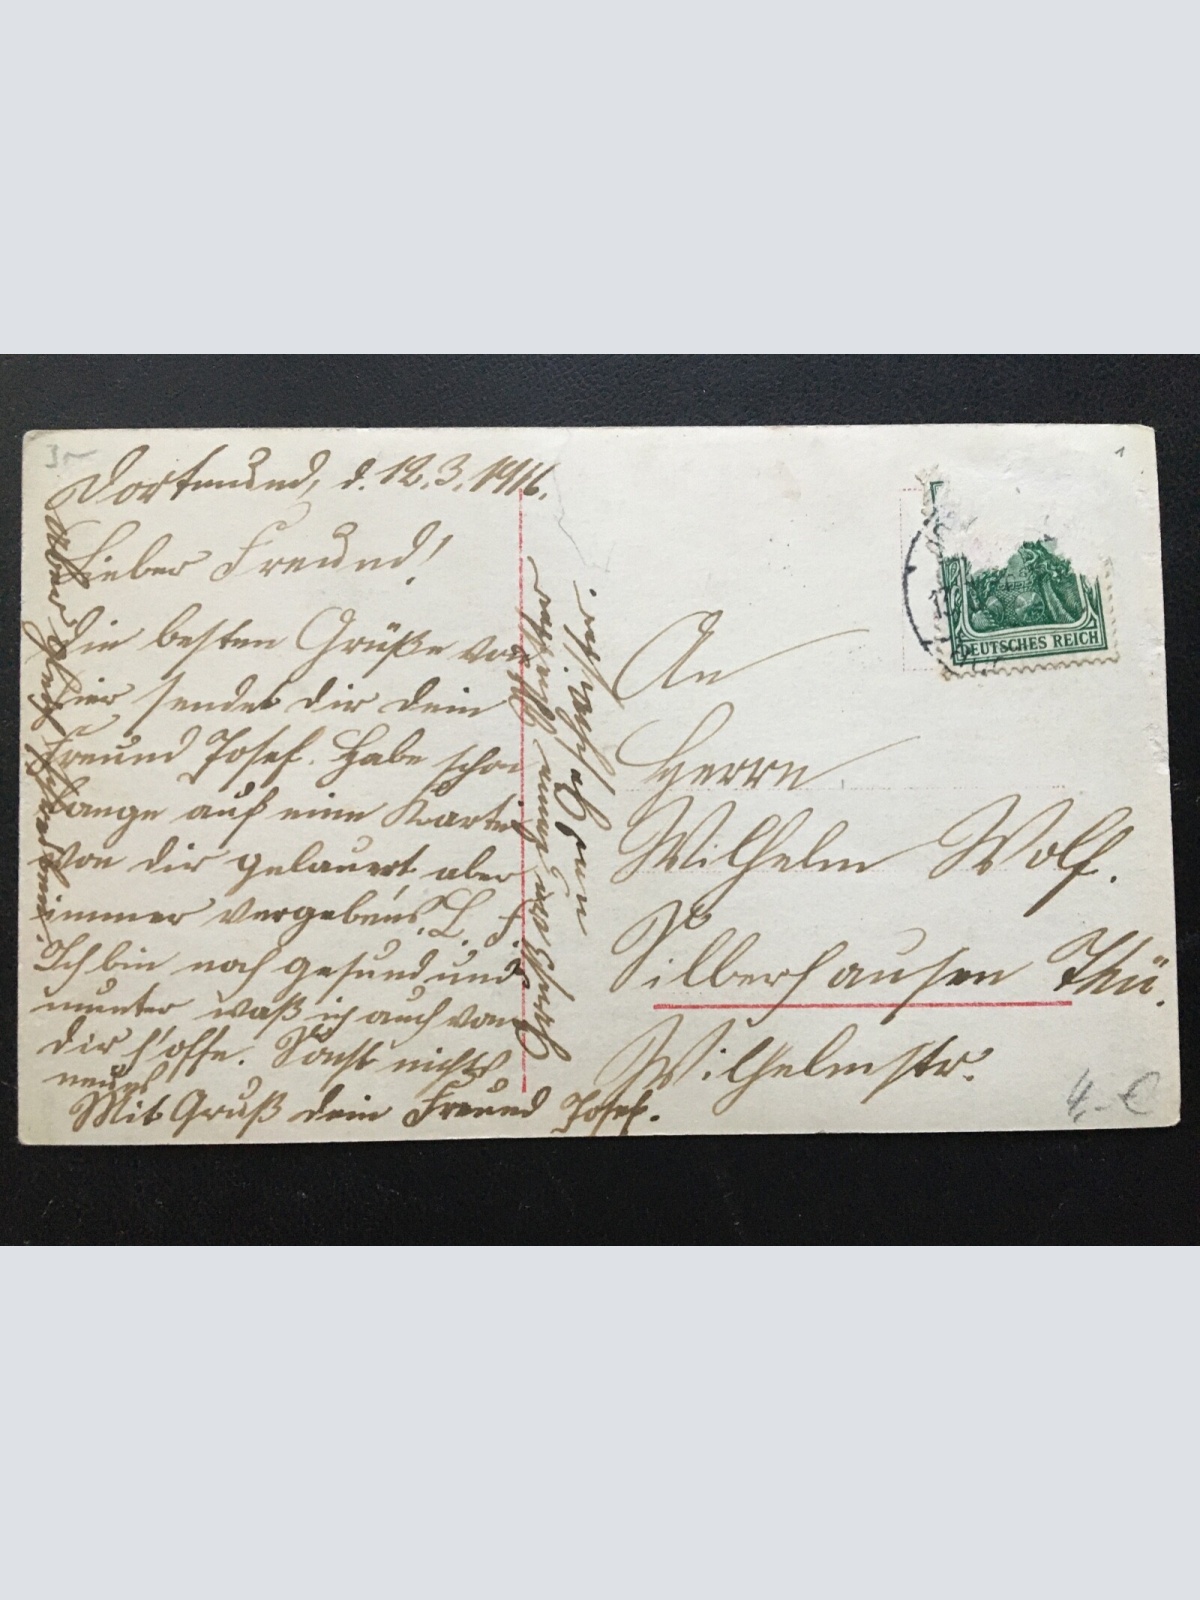 Dortmund, d. 12.3.1916.
Lieber Freund!
Die besten Grüße von
hier sendet dir dein
Freund Josef. Habe schon
lange auf eine Karte
von dir gelauert, aber
immer vergebens. L. F.
Ich bin noch gesund und
munter waß ich auch von
dir hoffe. Sonst nichts
neues
Mit Gruß dein Freund Josef.
Aber
An
Herrn
Wilhelm Wolf.
Silberhausen Thü.
Wilhelmstr.
DEUTSCHES REICH
3~
1
4,- €